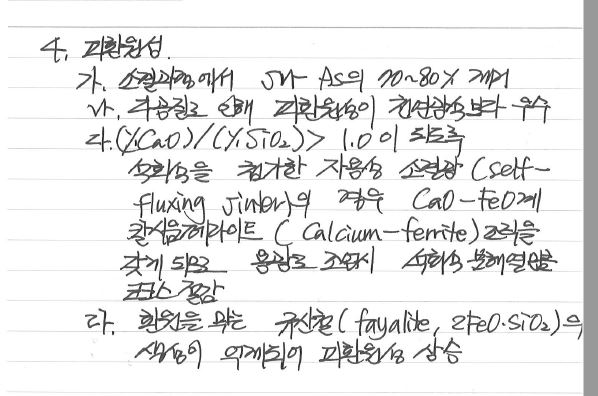 4. 피환원성.
가. 소결과정에서 S나 As의 70~80% 제거
나. 다공질로 인해 피환원성이 천연광석보다 우수
다. (%CaO)/(%SiO2) > 1.0이 되도록
석회석을 첨가한 자용성 소결광 (self-
fluxing sinter)의 경우 CaO-FeO계
칼슘페라이트 (Calcium-ferrite) 조직을
갖게 되므로 용광로 조업시 석회석 분해열만큼
코크스 절감
다. 환원을 막는 규산철 (fayalite, 2FeO·SiO2)의
생성이 억제되어 피환원성 상승